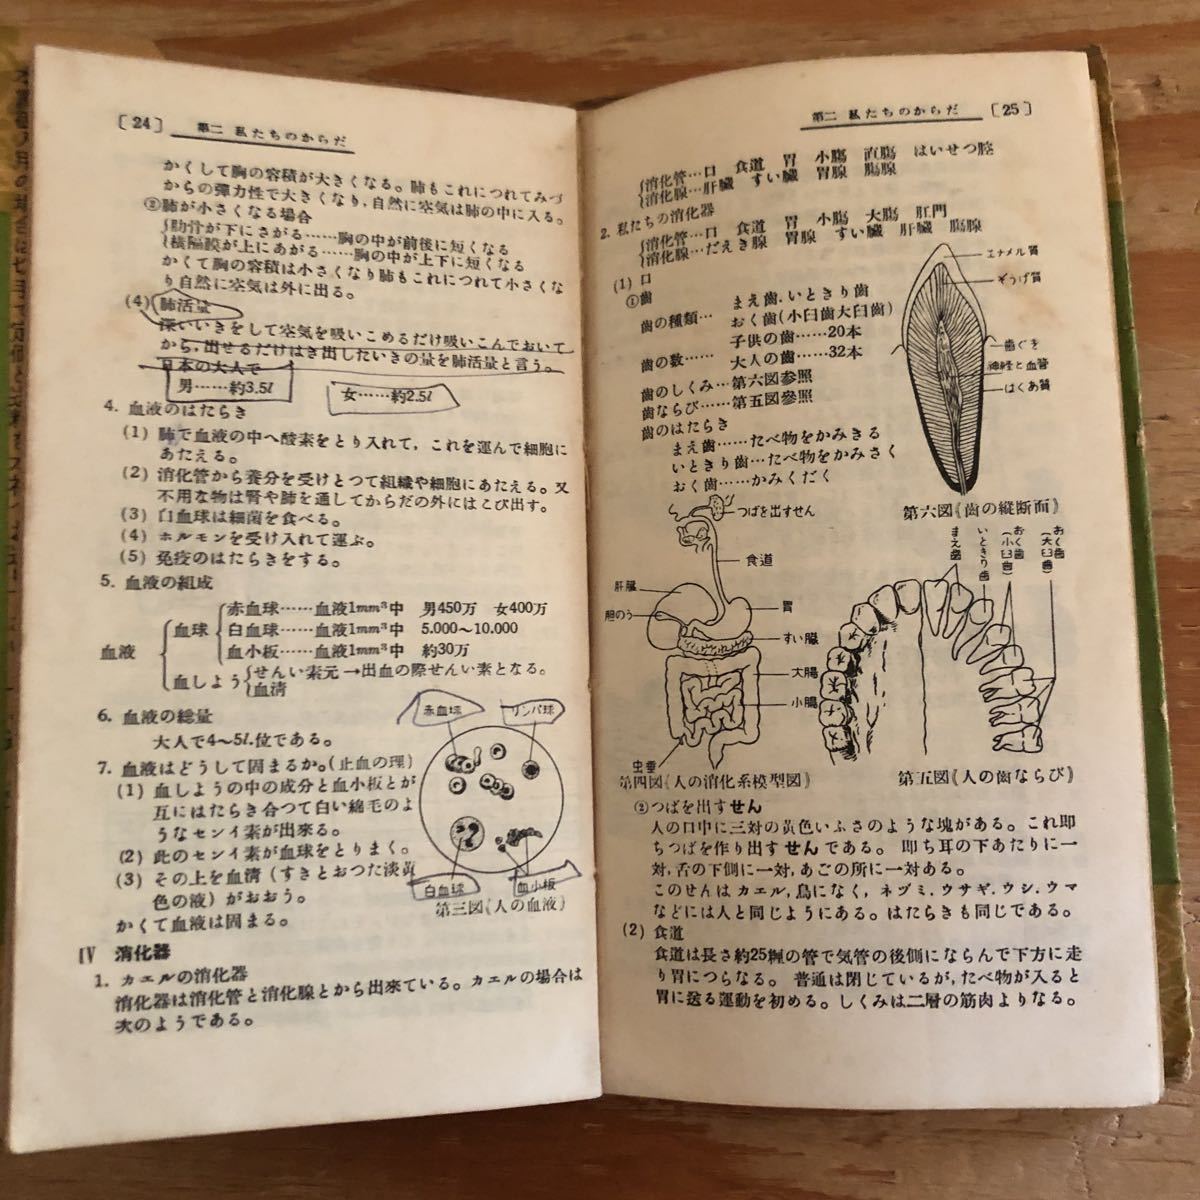 〔24〕 第二 私たちのからだ
かくして胸の容積が大きくなる。肺もこれにつれてみづ
からの弾力性で大きくなり,自然に空気は肺の中に入る。
②肺が小さくなる場合
肋骨が下にさがる……胸の中が前後に短くなる
横隔膜が上にあがる……胸の中が上下に短くなる
かくて胸の容積は小さくなり肺もこれにつれて小さくな
り自然に空気は外に出る。
(4) 肺活量
深いいきをして空気を吸いこめるだけ吸いこんでおいて
から,出せるだけはき出したいきの量を肺活量と言う。
日本の大人で
男……約3.5l 女……約2.5l
4. 血液のはたらき
(1) 肺で血液の中へ酸素をとり入れて,これを運んで細胞に
あたえる。
(2) 消化管から養分を受けとつて組織や細胞にあたえる。又
不用な物は腎や肺を通してからだの外にはこび出す。
(3) 白血球は細菌を食べる。
(4) ホルモンを受け入れて運ぶ。
(5) 免疫のはたらきをする。
5. 血液の組成
血液
血球
赤血球……血液1mm³中 男450万 女400万
白血球……血液1mm³中 5.000〜10.000
血小板……血液1mm³中 約30万
血しよう
せんい素元→出血の際せんい素となる。
血清
6. 血液の総量
大人で4〜5l.位である。
7. 血液はどうして固まるか。(止血の理)
(1) 血しようの中の成分と血小板とが
互にはたらき合つて白い綿毛のよ
うなセンイ素が出来る。
(2) 此のセンイ素が血球をとりまく。
(3) その上を血清(すきとおつた淡黄
色の液)がおおう。
かくて血液は固まる。
赤血球
リンパ球
白血球
血小板
第三図《人の血液》
Ⅳ 消化器
1. カエルの消化器
消化器は消化管と消化腺とから出來ている。カエルの場合は
次のようである。
第二 私たちのからだ 〔25〕
消化管…口 食道 胃 小腸 直腸 はいせつ腔
消化腺…肝臓 すい臓 胃腺 腸腺
2. 私たちの消化器
消化管…口 食道 胃 小腸 大腸 肛門
消化腺…だえき腺 胃腺 すい臓 肝臓 腸腺
(1) 口
①歯
歯の種類… まえ歯.いときり歯
おく歯(小臼歯大臼歯)
歯の数…… 子供の歯……20本
大人の歯……32本
歯のしくみ…第六図参照
歯ならび……第五図參照
歯のはたらき
まえ歯……たべ物をかみきる
いときり歯…たべ物をかみさく
おく歯……かみくだく
エナメル質
ぞうげ質
歯ぐき
神経と血管
はくあ質
第六図《歯の縦断面》
つばを出すせん
食道
肝臓
胆のう
胃
すい臓
大腸
小腸
虫垂
第四図《人の消化系模型図》
まえ歯
いときり歯
おく歯(小臼歯)
おく歯(大臼歯)
第五図《人の歯ならび》
②つばを出すせん
人の口中に三対の黄色いふさのような塊がある。これ即
ちつばを作り出すせんである。 即ち耳の下あたりに一
対,舌の下側に一対,あごの所に一対ある。
このせんはカエル,鳥になく,ネヅミ,ウサギ,ウシ,ウマ
などには人と同じようにある。はたらきも同じである。
(2) 食道
食道は長さ約25糎の管で気管の後側にならんで下方に走
り胃につらなる。 普通は閉じているが,たべ物が入ると
胃に送る運動を初める。しくみは二層の筋肉よりなる。